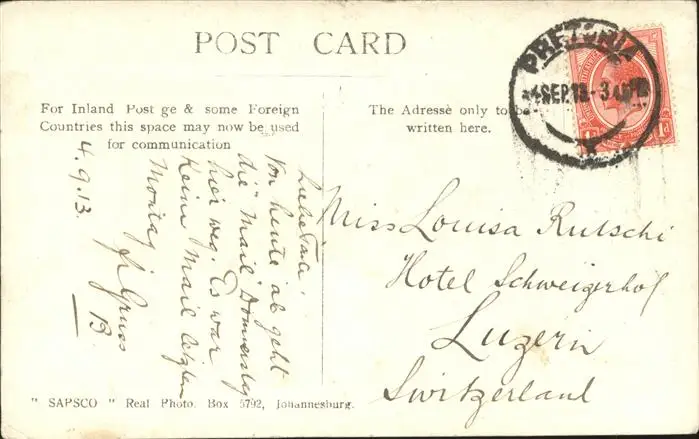 POST CARD
For Inland Post ge & some Foreign
Countries this space may now be used
for communication
The Adressè only to be
written here.
PRETORIA
4 SEP. 13 - 3
1d
4.9.13.
Liebe
Von heute ab geht
die "Mail" Donnerstag
hier weg. Es war
keine Mail letzten
Montag
Gruss
B.
Miss Louisa Rutschi
Hotel Schweizerhof
Luzern
Switzerland
" SAPSCO " Real Photo. Box 5792, Johannesburg.